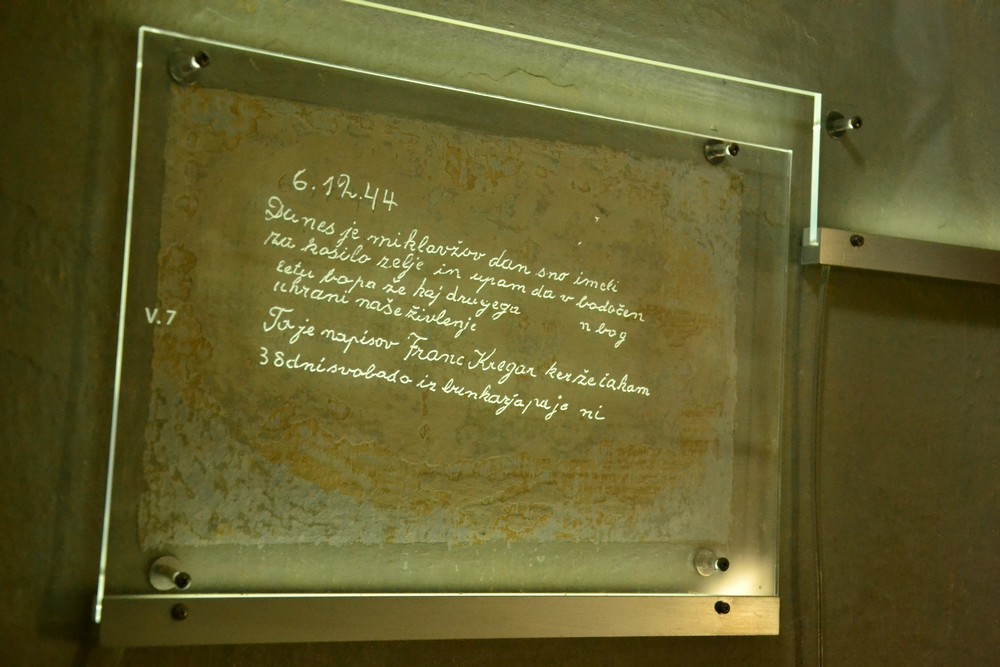 6.12.44
Danes je miklavžov dan smo imeli
za kosilo zelje in upam da v bodočen
letu bo pa že kaj drugega n bog
uhrani naše življenje
To je napisov Franc Kregar ker že čakam
38 dni svobodo iz bunkarja, pa je ni
V.7